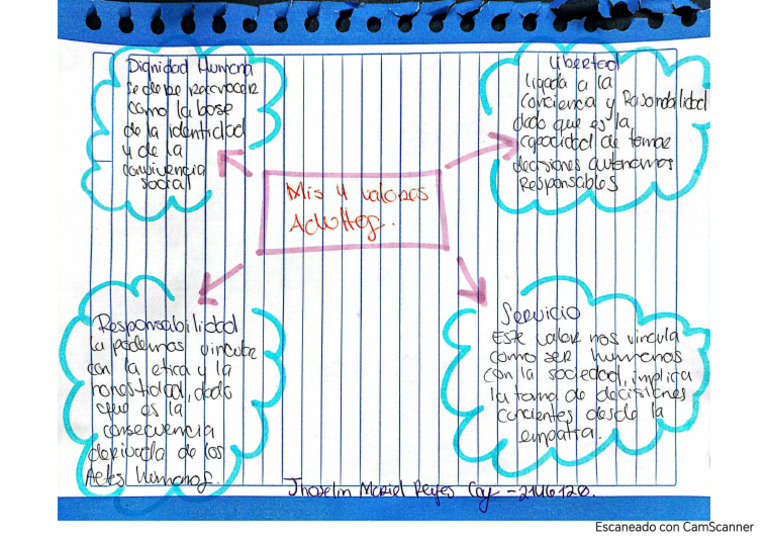 Dignidad Humana
se debe reconocer
como la base
de la identidad
y de la
convivencia
social
Libertad
ligada a la
conciencia y Razonabilidad
dado que es la
capacidad de tomar
decisiones autonomas
Responsables
Mis 4 valores
Responsabilidad
la podemos vincular
con la etica y la
honestidad, dado
que es la
consecuencia
derivada de los
Actos Humanos.
Servicio
Este valor nos vincula
como ser humanos
con la sociedad, implica
la toma de decisiones
concientes desde la
empatia.
Mariel Reyes
Escaneado con CamScanner